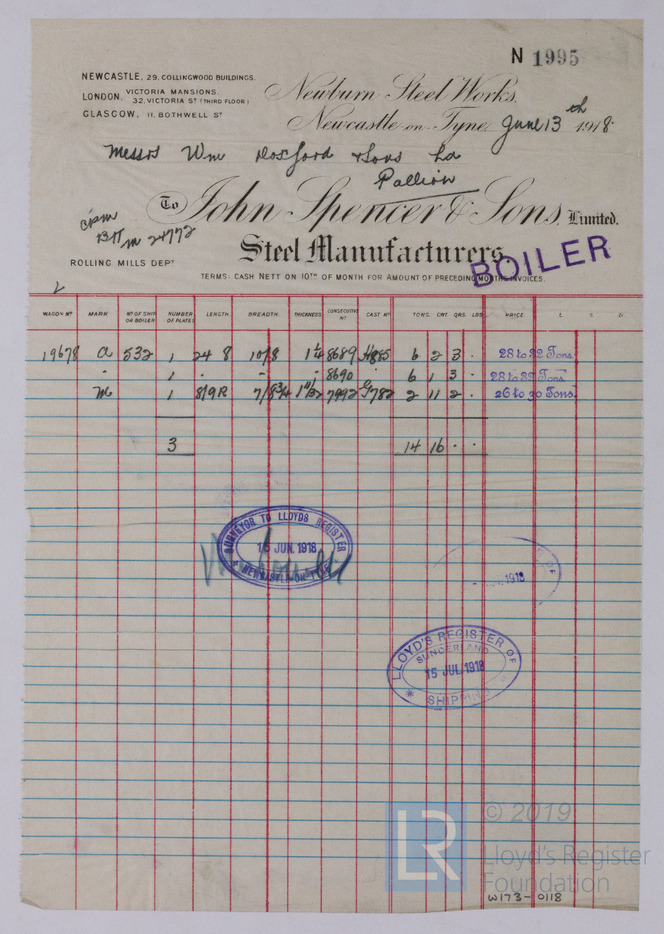 N 1995
NEWCASTLE, 29. COLLINGWOOD BUILDINGS.
LONDON, VICTORIA MANSIONS,
32. VICTORIA ST (THIRD FLOOR)
GLASCOW, 11. BOTHWELL ST
Newburn Steel Works,
Newcastle-on-Tyne, June 13th 1918
Messrs Wm Doxford & Sons Ld
Pallion
To John Spencer & Sons, Limited.
24772
Steel Manufacturers.
ROLLING MILLS DEPT
BOILER
TERMS: CASH NETT ON 10TH OF MONTH FOR AMOUNT OF PRECEDING MONTHS INVOICES.
WAGON No MARK No OF SHIP OR BOILER NUMBER OF PLATES LENGTH BREADTH THICKNESS CONSECUTIVE No CAST No TONS. CWT. QRS. LBS. PRICE £ S D.
19678 a 532 1 24 8 10/8 1 1/4 8689 6 2 3 . 28 to 32 Tons.
" 1 . . . 8690 6 1 3 . 28 to 32 Tons.
m 1 8/9R 2 11 2 . 26 to 30 Tons.
3 14 16 . .
SURVEYOR TO LLOYDS REGISTER
15 JUN. 1918
NEWCASTLE-ON-TYNE
1918
LLOYD'S REGISTER OF
SUNDERLAND
15 JUL 1918
SHIPPING
LR
© 2019
Lloyd's Register
Foundation
W173-0118